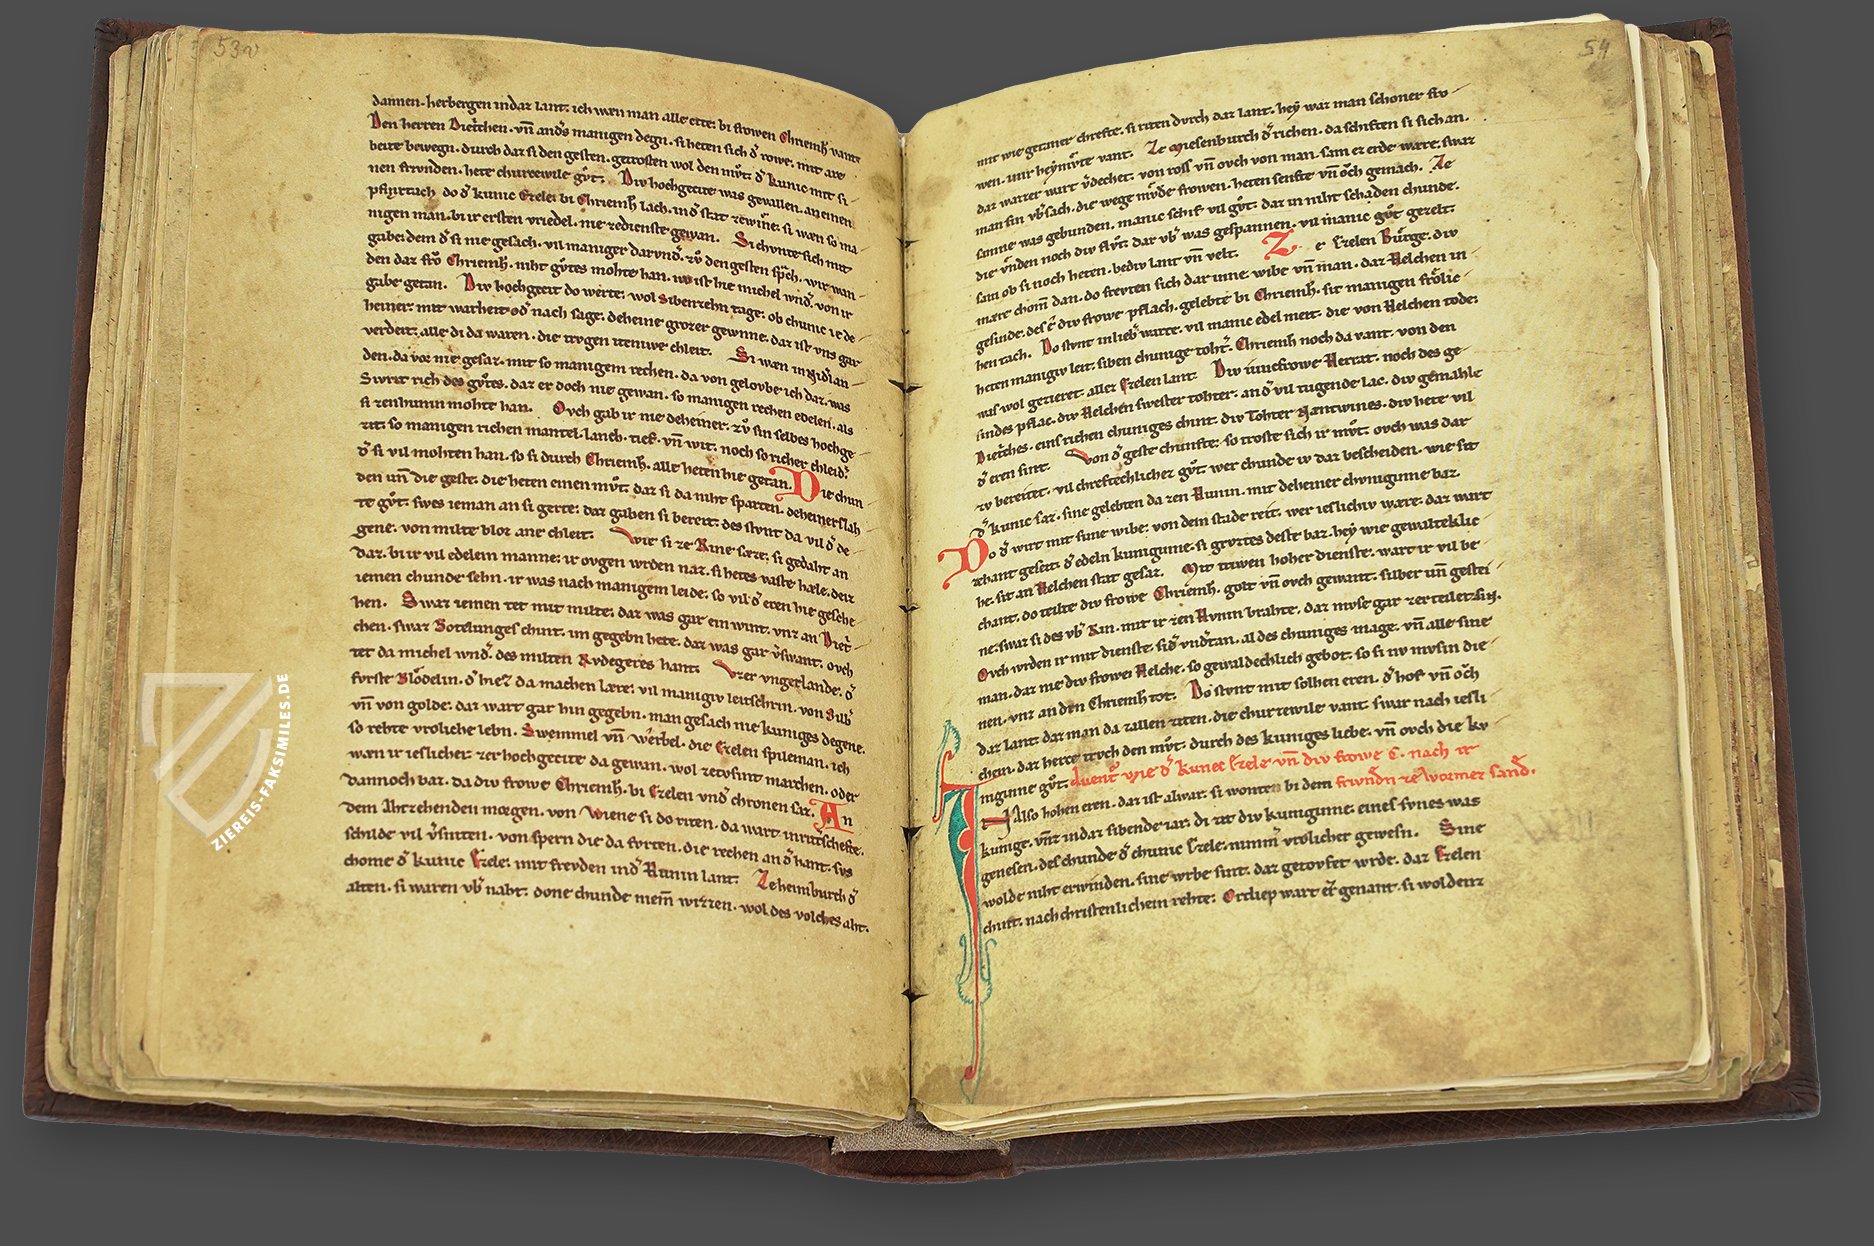 53v
dannen. herbergen in daz lant. ich wæn man alle zite: bi frowen Chriemh vante
Den herren Dietrichen. vn̄ and's manigen degn. si heten sich d' rowe: mit are
beite bewegn. durch daz si den gesten. getrosten wol den mvt. d' kunic mit si
nen frvnden. hete churcewile gvt. Div hochgecite was gevallen. an einen
pfinxtach do d' kunic Ezele: bi Chriemh lach. in d' stat ze wine: si wæn so ma
nigen man. bi ir ersten vriedel. nie ze dienste gewan. Si chvnte sich mit
gabe: dem d' si nie gesach. vil maniger dar vnd'. zv den gesten sp̄ch. wir wan
den daz frō Chriemh. niht gvtes mohte han. nv ist hie michel wnd'. von ir
gabe getan. Div hochgecit do werte: wol sibenzehn tage. ob chunic ie de
heiner: mit warheit od' nach sage. deheine grozer gewinne. daz ist vns gar
verdeit: alle di da waren. die trvgen iteniwe chleit. Si wæn in Nid'lan
den. da vor nie gesaz. mit so manigem rechen. da von gelovbe ich daz. was
Sivrit rich des gvtes. daz er doch nie gewan. so manigen rechen edelen. als
si zen hunin mohte han. Ovch gab ir nie deheiner: zv sin selbes hochge
zit: so manigen richen mantel. lanch. tief. vn̄ wit: noch so richer chleid'
d' si vil mohten han. so si durch Chriemh. alle heten hie getan. Die chun
den un̄ die geste: die heten einen mvt: daz si da niht sparten. deheiner slah
te gvt: swes ieman an si gerte: daz gaben si bereit: des stvnt da vil d' de
gene: von milte bloz ane chleit. Wie si ze Rine sæze: si gedaht an
daz. bi ir vil edelem manne: ir ovgen wrden naz. si hetes vaste hæle. deiz
iemen chunde sehn. ir was nach manigem leide: so vil d' eren hie gesche
hen. Swaz iemen tet mit milte: daz was gar ein wint. vnz an Diet'
chen. swaz Botelunges chint. im gegebn hete. daz was gar v'swant. ovch
tet da michel wnd'. des milten Rvdegeres hant. Vzer vngerlande: d'
fvrste Blōdelin. d' hiez da machen lære: vil manigiv leitschrin. von silb'
vn̄ von golde: daz wart gar hin gegebn. man gesach nie kuniges degene.
so rehte vroliche lebn. Swemmel vn̄ Werbel. die Ezelen spileman. ich
wæn ir ieslicher: zer hochgecite da gewan. wol ze tvsint marchen. oder
dannoch baz. da div frowe Chriemh. bi Ezelen vnd' chronen saz. An
dem ahtzehenden morgen. von Wiene si do riten. da wart in rit'schefte.
schilde vil v'sniten. von spern die da fvrten. die rechen an d' hant: svs
chome d' kunic Ezele: mit frevden in d' Hunin lant. Ze heimburch d'
alten. si waren vb' naht: done chunde niem̄ wizzen. wol des volches aht.
54
mit wie getaner chrefte. si riten dvrch daz lant. hey waz man schoner fro
wen. inir heymvte vant. Ze Miesenburch d' richen. da schiften si sich an.
daz wazzer wart v'dechet. von ross vn̄ ovch von man. sam ez erde wære: swaz
man sin vb'sach. die wege mvde frowen. heten senfte vn̄ och gemach. Ze
samne was gebunden. manic schif vil gvt: daz in niht schaden chunde.
die vnden noch div flvt: dar vb' was gespannen. vil manic gvt gezelt:
sam ob si noch heten. bediv lant vn̄ velt. Ze Ezelen Bŭrge. div
mære chom̄ dan. do frevten sich dar inne. wibe vn̄ man. daz Helchen in
gesinde. des ē div frowe pflach. gelebte bi Chriemh. sit manigen frōlic
hen tach. Do stvnt in lieb' warte. vil manic edel meit. die von Helchen tode:
heten manigiv leit: siben chunige toht'. Chriemh noch da vant. von den
was wol gezieret. allez Ezelen lant. Div iuncfrowe Herrat. noch des ge
sindes pflac. div Helchen swester tohter: an d' vil tugende lac. div gemahle
Dietrches. eins richen chuniges chint. div Tohter Næntwines. div hete vil
d' eren sint. Von d' geste chunfte: so troste sich ir mvt. ovch was dar
zv bereitet. vil chreftechlicher gvt. wer chunde iv daz bescheiden. wie sit
d' kunic saz. sine gelebten da zen Hunin. mit deheiner chvniginne baz.
Do d' wirt mit sime wibe: von dem stade reit. wer ieslichiv wære: daz wart
zehant geseit: d' edeln kunigunne. si grvztes deste baz. hey wie gewaltechlic
he. sit an Helchen stat gesaz. Mit triwen hoher dienste. wart ir vil be
chant. do teilte div frowe Chriemh. golt vn̄ ovch gewant. silber un̄ gestei
ne: swaz si des vb' Rin. mit ir zen Hvnin brahte. daz mvse gar zerteilet sin.
Ovch wrden ir mit dienste. sid' vnd'tan. al des chuniges mage. vn̄ alle sine
man. daz nie div frowe: Helche. so gewaldechlich gebot. so si nv mvsin die
nen. vnz an den Chriemh tot. Do stvnt mit solhen eren. d' hof vn̄ och
daz lant: daz man da zallen ziten. die churzewile vant. swar nach iesli
chem. daz herze trvch den mvt: durch des kuniges liebe. vn̄ ovch die kv
niginne gvt. Avent' wie d' kunec Ezele vn̄ div frowe C. nach ir
Also hohen eren. daz ist alwar. si wonten bi dem frivndn̄ ze Wormez sand'.
kunige. vnz in daz sibende iar: di zit div kuniginne. eines svnes was
genesen. des chunde d' chunic Ezele: nimm̄ vrolicher gewesn. Sine
wolde niht erwinden. sine wrbe sint. daz getovfet wrde. daz Ezelen
chint. nach christenlichem rehte: Ortliep wart ez genant. si woldenz
ZIEREIS-FAKSIMILES.DE